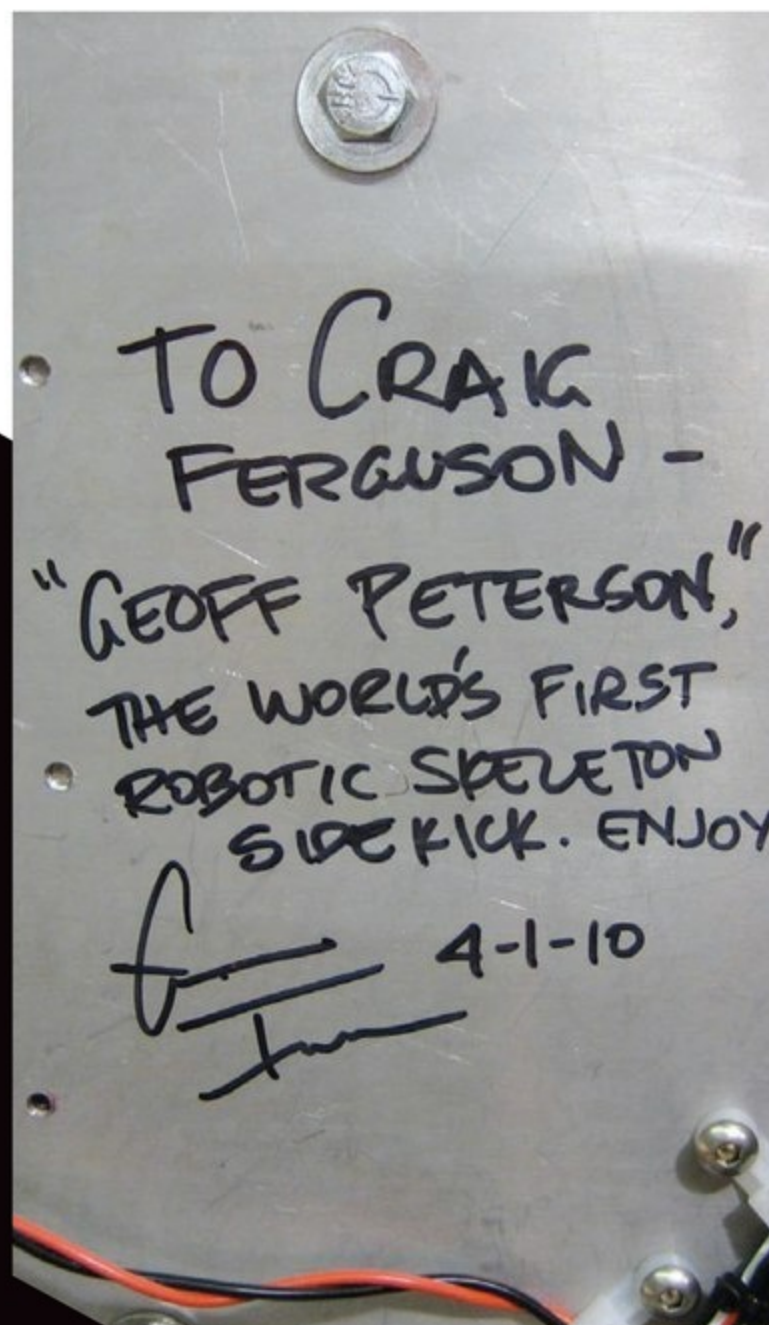 TO CRAIG
FERGUSON -
"GEOFF PETERSON,"
THE WORLD'S FIRST
ROBOTIC SKELETON
SIDEKICK. ENJOY
4-1-10